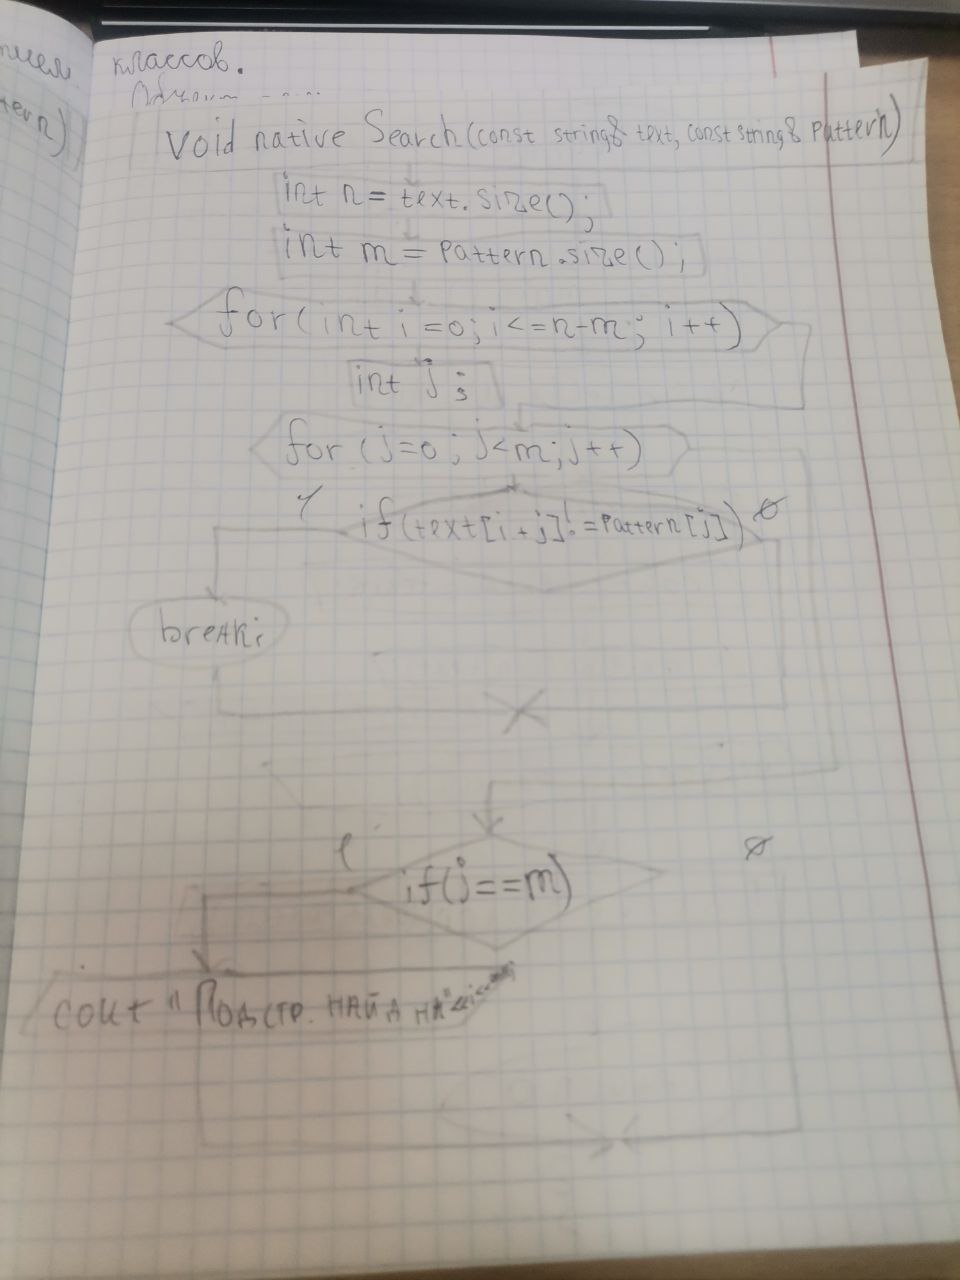 классов.
tern)
void native Search(const string& text, const string& pattern)
int n = text.size();
int m = pattern.size();
for(int i=0; i<=n-m; i++)
int j;
for (j=0; j<m; j++)
if(text[i+j]!=pattern[j])
break;
if(j==m)
cout "Подстр. найд на"<<i<<